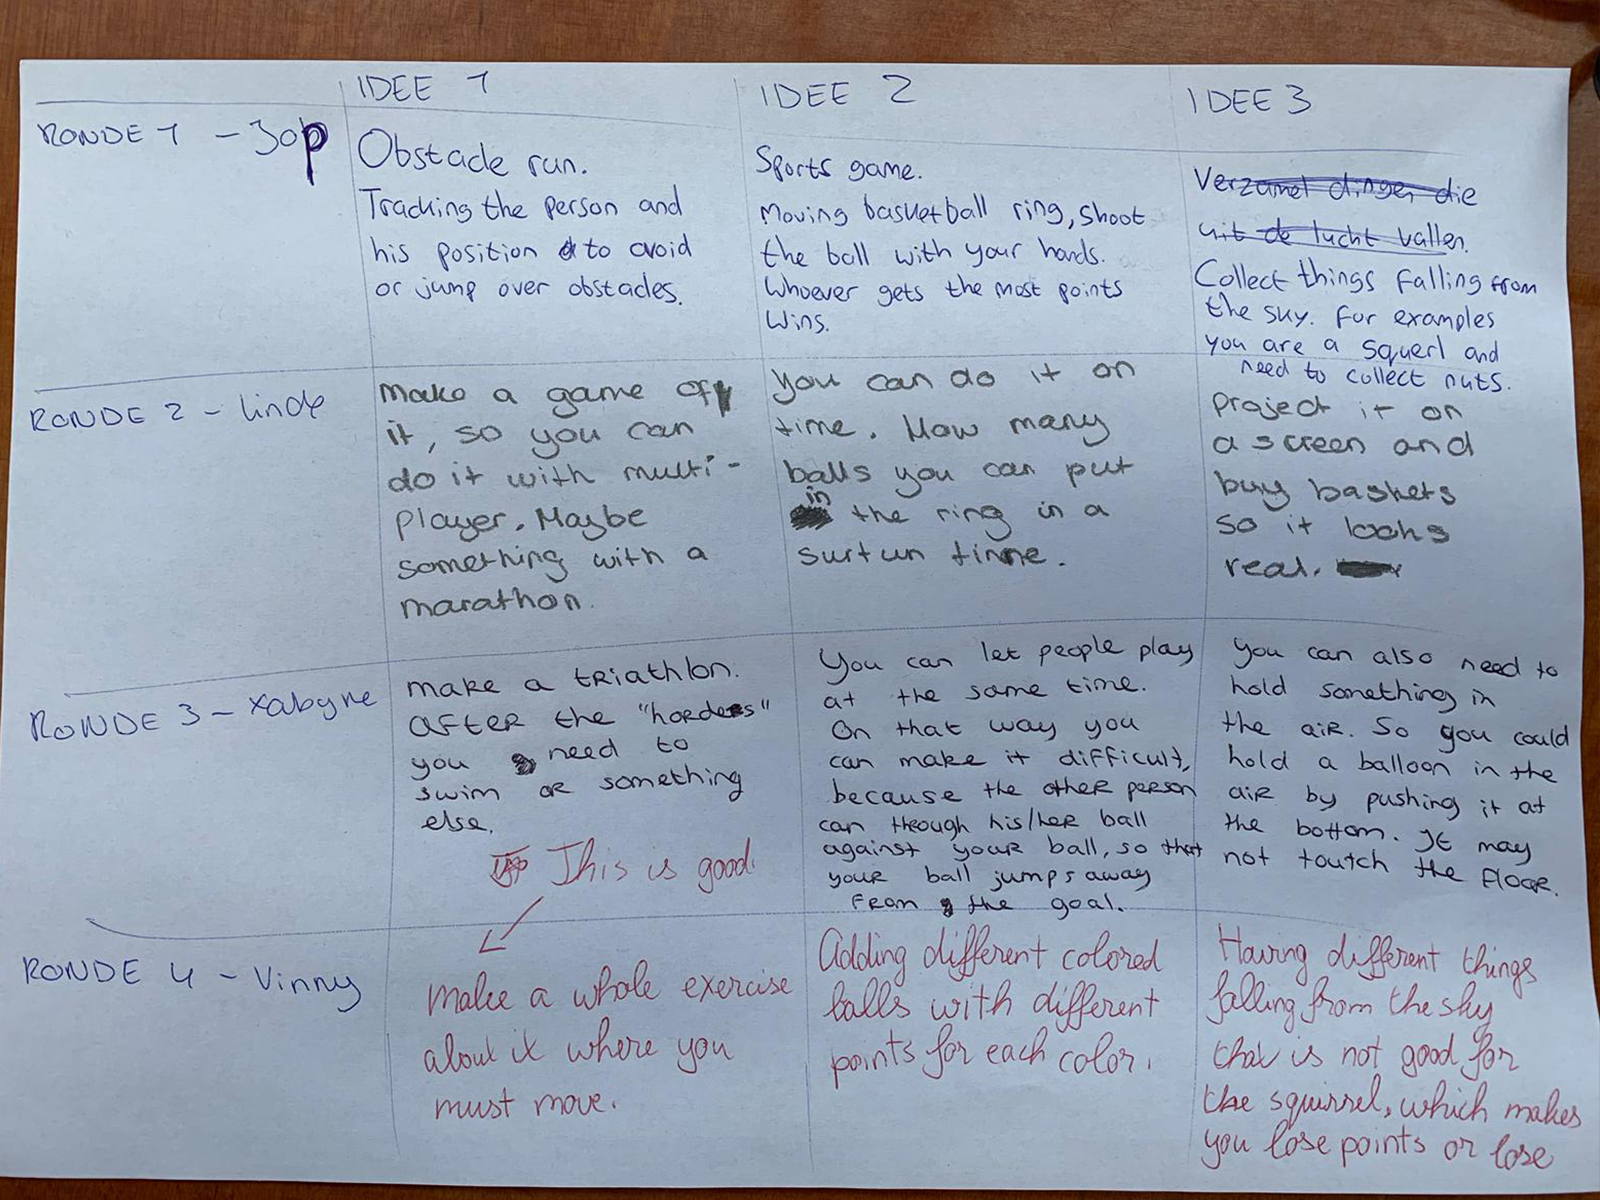 IDEE 1
IDEE 2
IDEE 3
RONDE 1 - Jop
Obstacle run.
Tracking the person and
his position to avoid
or jump over obstacles.
Sports game.
Moving basketball ring, shoot
the ball with your hands.
Whoever gets the most points
wins.
Verzamel dingen die
uit de lucht vallen.
Collect things falling from
the sky. For examples
you are a squerl and
need to collect nuts.
RONDE 2 - Linde
Make a game of
it, so you can
do it with multi-
player. Maybe
something with a
marathon.
you can do it on
time. How many
balls you can put
in the ring in a
surtun time.
project it on
a screen and
buy baskets
so it looks
real.
RONDE 3 - Xabyne
make a triathlon.
after the "hordes"
you need to
swim or something
else.
This is good.
You can let people play
at the same time.
On that way you
can make it difficult,
because the other person
can through his/her ball
against your ball, so that
your ball jumps away
from the goal.
you can also need to
hold something in
the air. So you could
hold a balloon in the
air by pushing it at
the bottom. It may
not toutch the floor.
RONDE 4 - Vinny
Make a whole exercise
about it where you
must move.
Adding different colored
balls with different
points for each color.
Having different things
falling from the sky
that is not good for
the squirrel, which makes
you lose points or lose